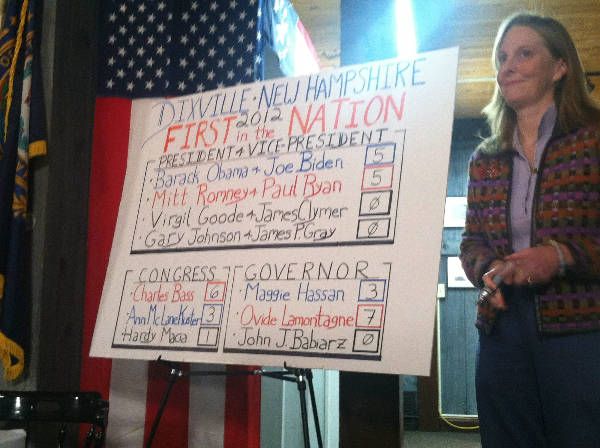 DIXVILLE · NEW HAMPSHIRE
2012
FIRST in the NATION
PRESIDENT & VICE-PRESIDENT
· Barack Obama & Joe Biden 5
· Mitt Romney & Paul Ryan 5
· Virgil Goode & James Clymer Ø
· Gary Johnson & James P. Gray Ø
CONGRESS
· Charles Bass 6
· Ann McLane Kuster 3
· Hardy Macia 1
GOVERNOR
· Maggie Hassan 3
· Ovide Lamontagne 7
· John J. Babiarz Ø